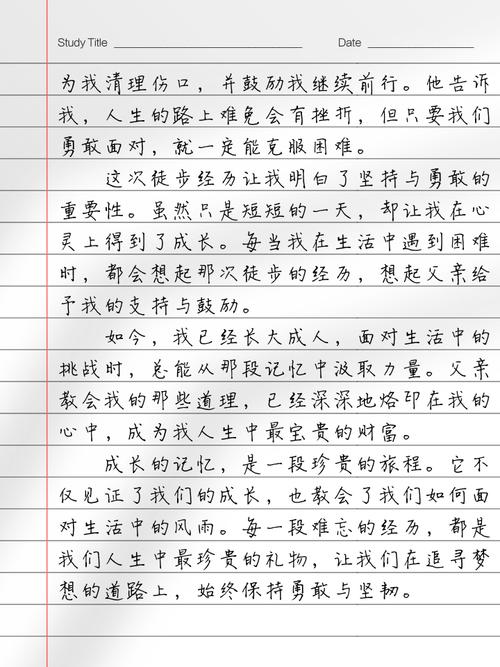 Study Title
Date
为我清理伤口，并鼓励我继续前行。他告诉
我，人生的路上难免会有挫折，但只要我们
勇敢面对，就一定能克服困难。
这次徒步经历让我明白了坚持与勇敢的
重要性。虽然只是短短的一天，却让我在心
灵上得到了成长。每当我在生活中遇到困难
时，都会想起那次徒步的经历，想起父亲给
予我的支持与鼓励。
如今，我已经长大成人，面对生活中的
挑战时，总能从那段记忆中汲取力量。父亲
教会我的那些道理，已经深深地烙印在我的
心中，成为我人生中最宝贵的财富。
成长的记忆，是一段珍贵的旅程。它不
仅见证了我们的成长，也教会了我们如何面
对生活中的风雨。每一段难忘的经历，都是
我们人生中最珍贵的礼物，让我们在追寻梦
想的道路上，始终保持勇敢与坚韧。